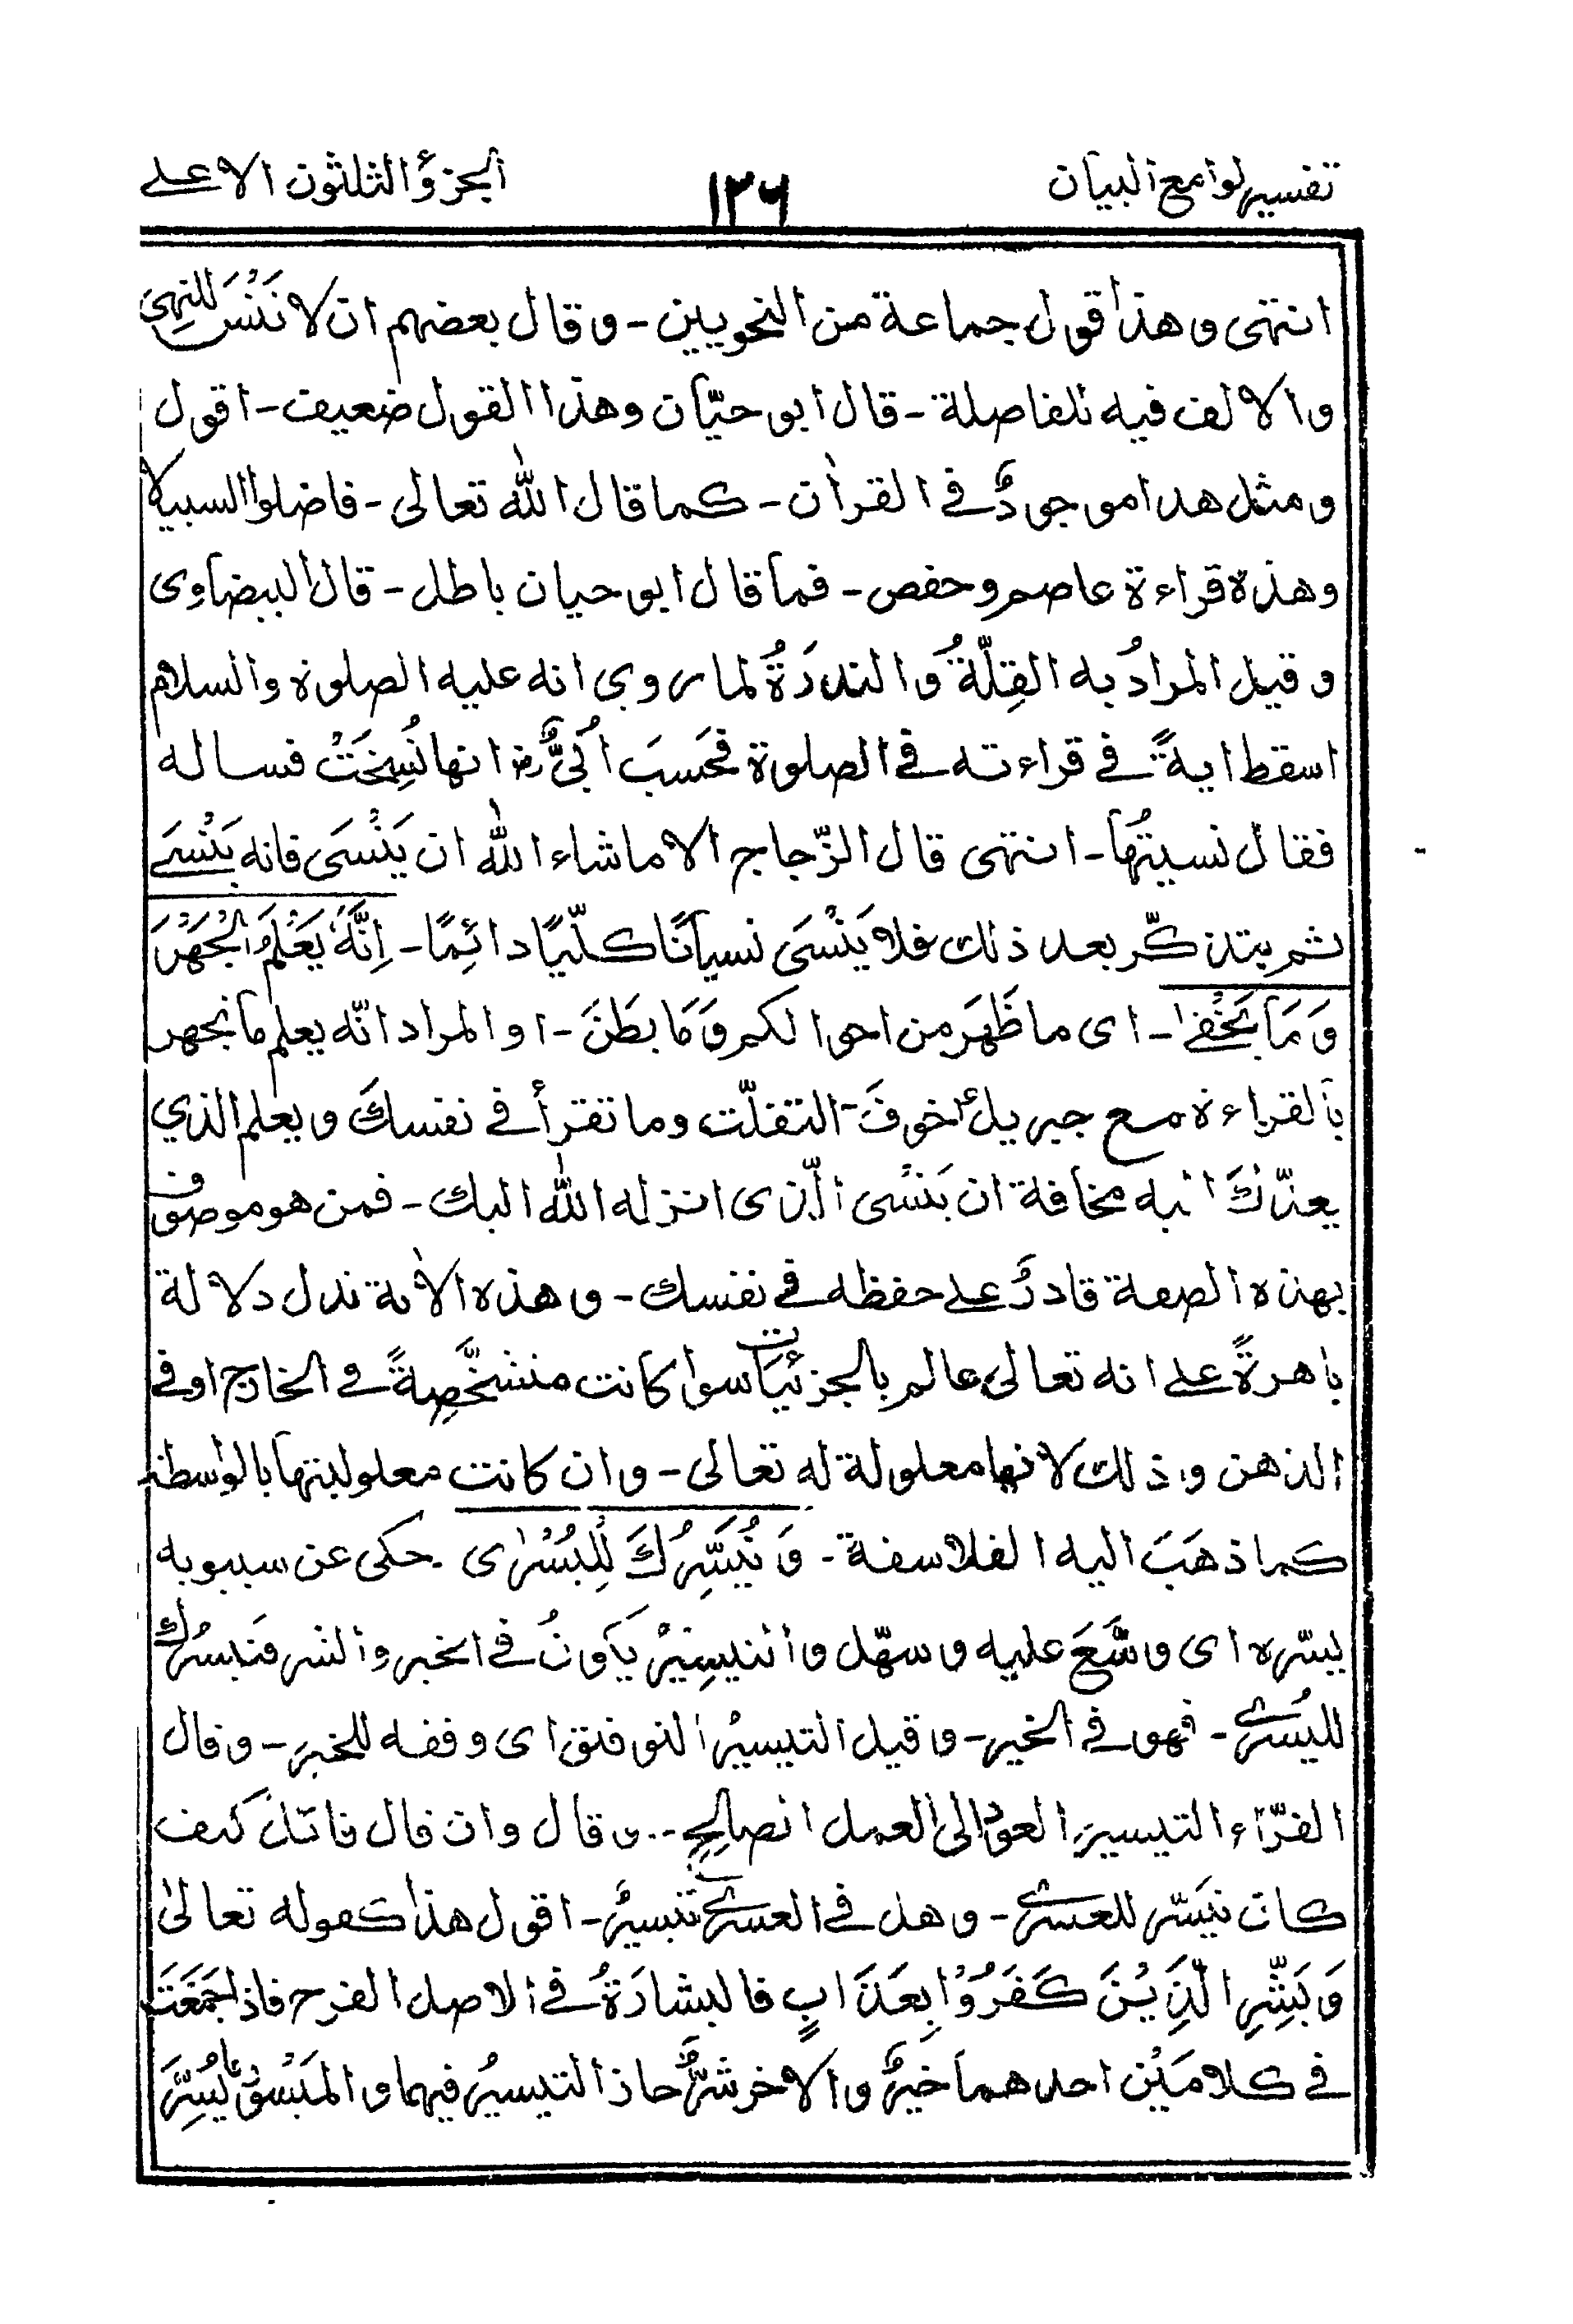 تفسير لوامع البيان ١٣٦ الجزؤ الثلثون الاعلے
انتهى وهذا قول جماعة من النحويين - وقال بعضهم ان لا تَنْسَ للنهى
والالف فيه للفاصلة - قال ابو حيّان وهذا القول ضعيف - اقول
ومثل هذا موجودٌ فے القراٰن - كما قال اللّٰه تعالى - فاضلوا السبيلا
وهذه قراءة عاصم وحفص - فما قال ابو حيان باطل - قال البيضاوى
وقيل المرادُ به القِلّةُ والندرَةُ لما روى انه عليه الصلوة والسلام
اسقط ايةً فے قراءته فے الصلوة فحَسِبَ اُبَىٌّ رض انها نُسِخَتْ فساله
فقال نسيتُها - انتهى قال الزّجاج الا ما شاء اللّٰه ان يَنْسَى فانه يَنْسَے
ثم يتذكّر بعد ذلك فلا يَنْسَى نسيانًا كلّيًا دائمًا - اِنَّهٗ يَعْلَمُ الْجَهْرَ
وَمَا يَخْفٰے - اى ما ظَهَرَ من احوالكم وَمَا بطَنَ - او المراد انّه يعلم ما تجهر
بالقراءة مع جبريلؑ خوفَ التفلّت وما تقرأ فے نفسكَ ويعلم الذي
به مخافة ان يَنْسى الّذى انزله اللّٰه اليك - فمن هو موصوف
بهذه الصفة قادرٌ علے حفظه فے نفسك - وهذه الاٰية تدل دلالة
باهرةً علے انه تعالى عالم بالجزئيات سواء كانت متشخّصِةً فے الخارج او فے
الذهن وذلك لانها معلولة له تعالى - وان كانت معلوليتها بالواسطة
كما ذهَبَ اليه الفلاسفة - وَنُيَسِّرُكَ لِلْيُسْرٰى - حكى عن سيبويه
يسّره اى وسَّعَ عليه وسهّل والتيسِيْرُ يكونُ فے الخير والشر فنيسّرك
لليُسرٰے - فهو فے الخير - وقيل التيسيرُ التوفيق اى وفقه للخير - وقال
الفرّاء التيسير العود الى العمل الصالح - وقال وان قال قائل كيف
كان نيَسّر للعسرٰے - وهل فے العسرٰے تيسيرٌ - اقول هذا كقوله تعالىٰ
وَبَشِّرِ الَّذِيْنَ كَفَرُوْا بِعَذَابٍ فالبشارَةُ فے الاصل الفرح فاذا جمَعَتَ
فے كلامَيْن احدهما خيرٌ والاخر شرٌّ جاز التيسيرُ فيهما و يُسِّرَ